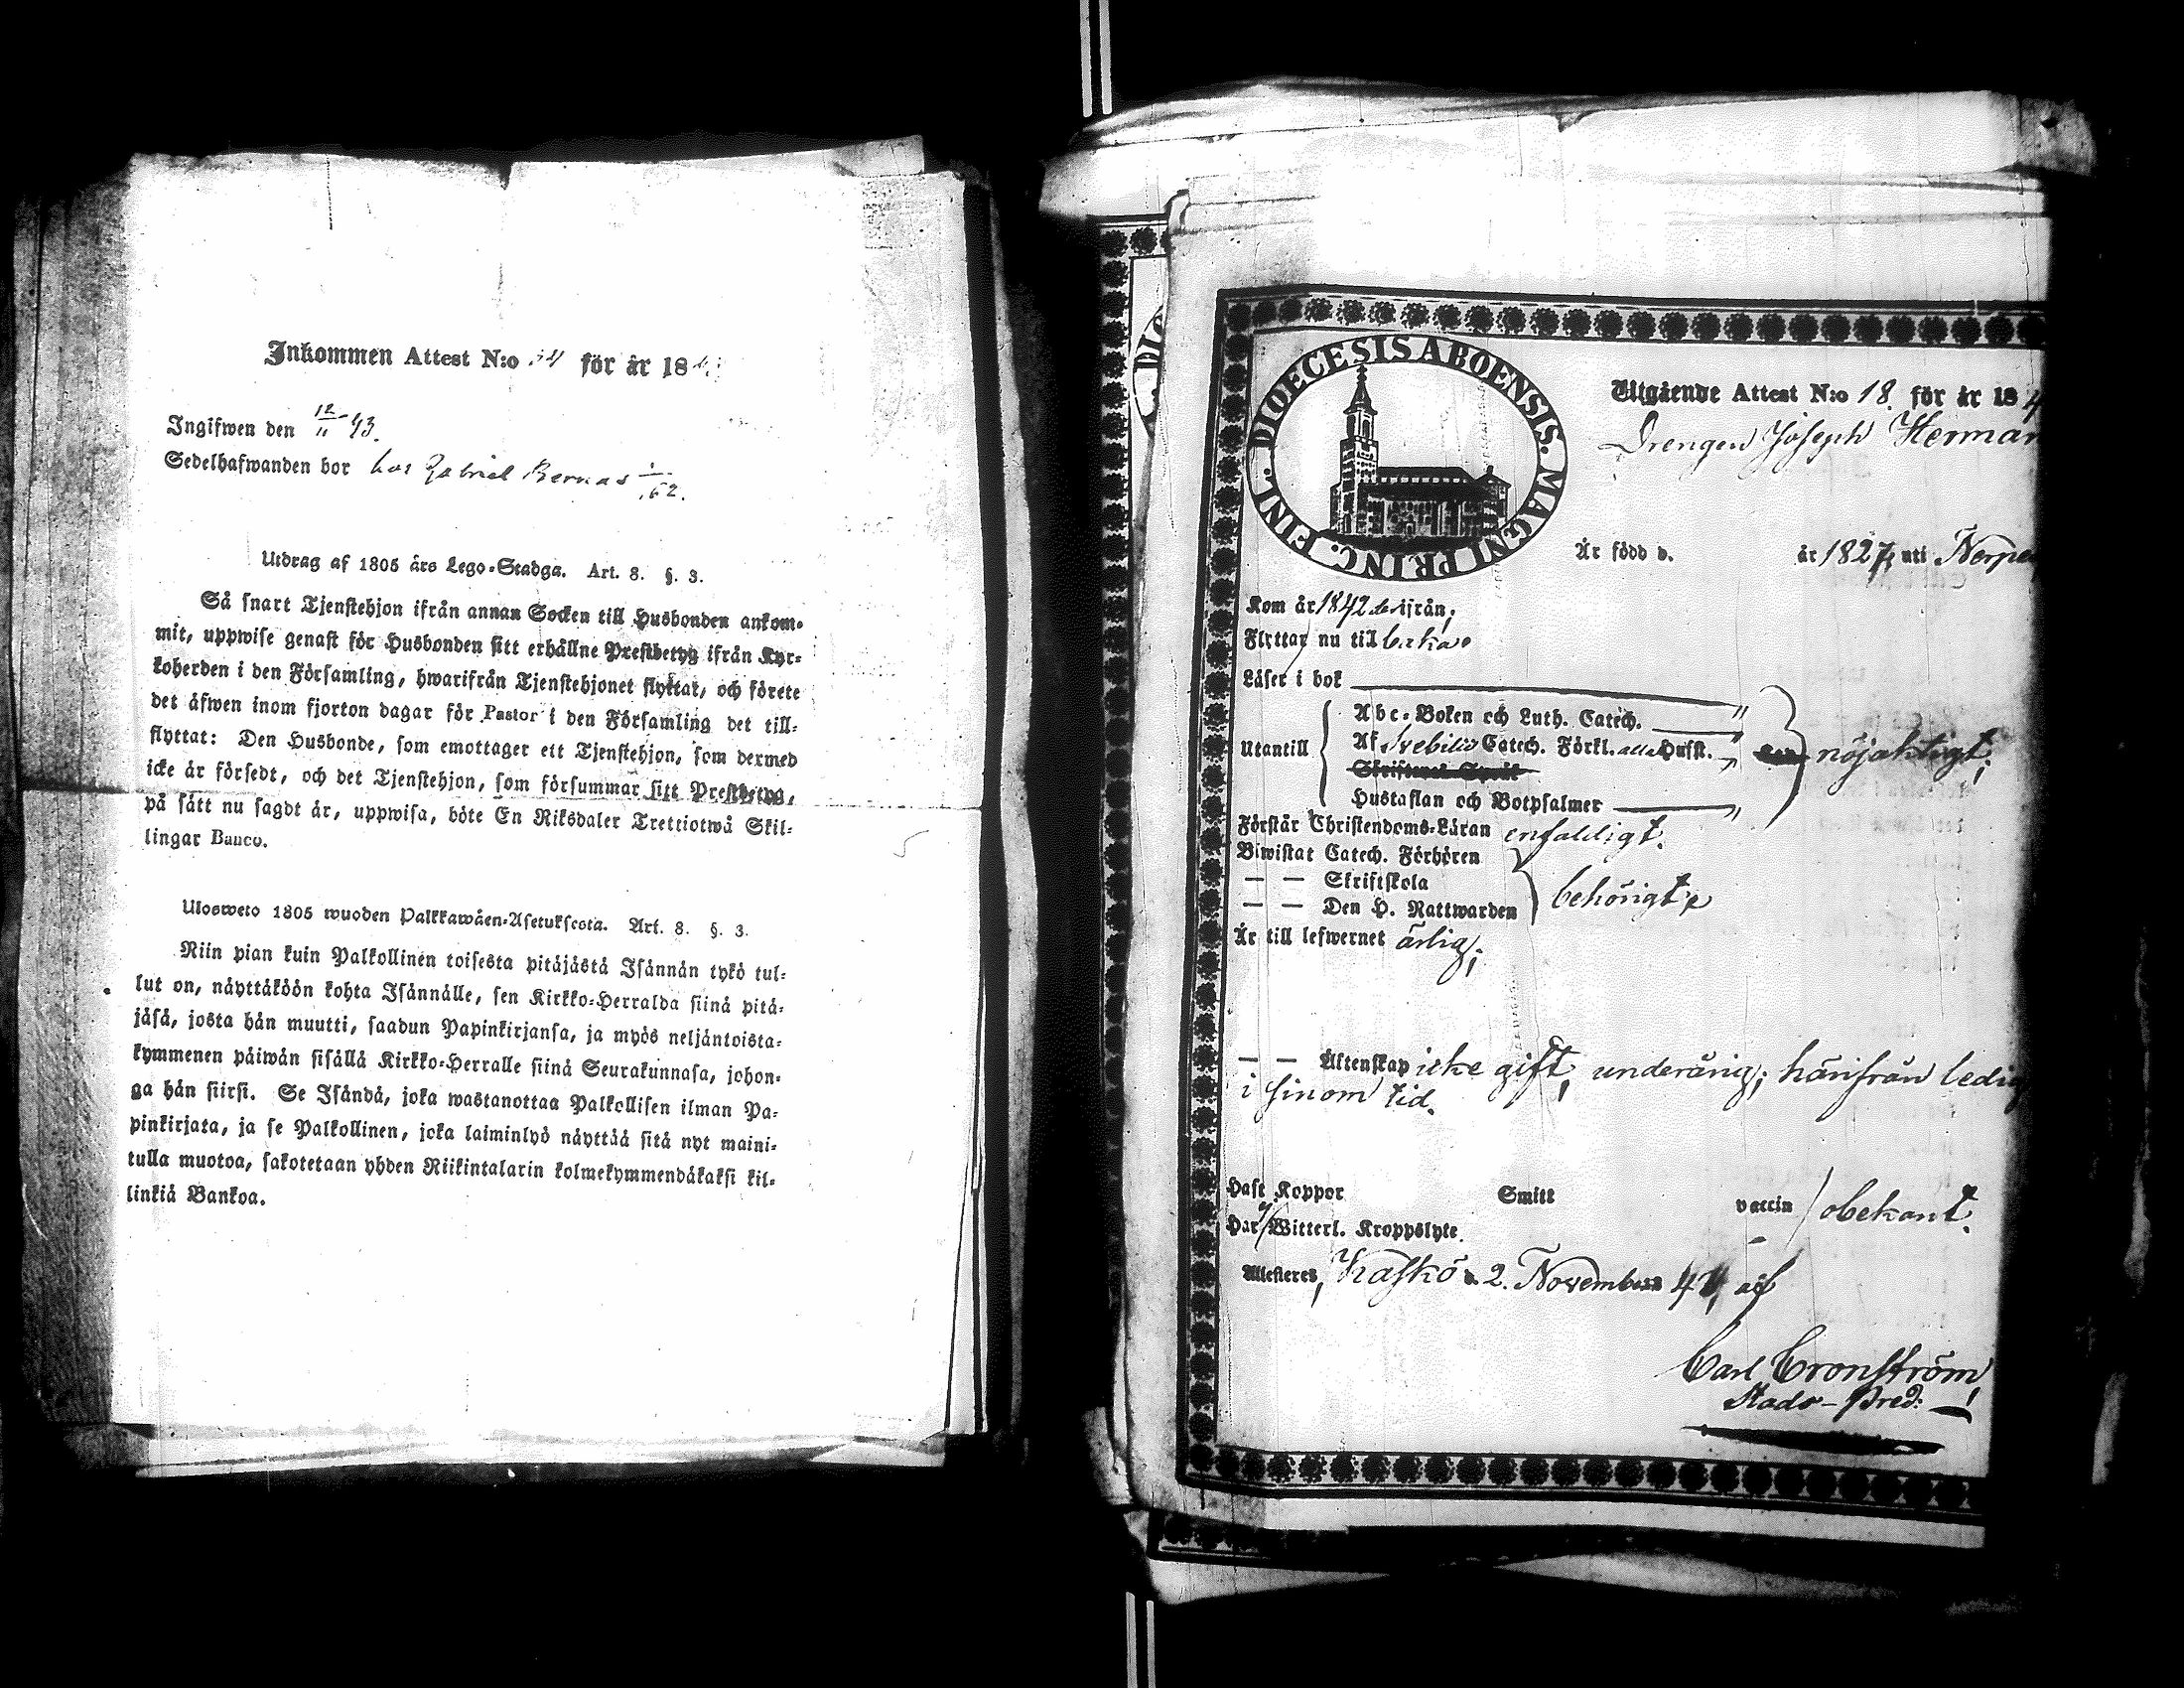 Inkommen Attest N:o 34 för år 18
Ingifwen den 12/11 43.
Sedelhafwanden bor hos Gabriel Bernas
Utdrag af 1805 års Lego-Stadga. Art. 8. §. 3.
Så snart Tjenstehjon ifrån annan Socken till Husbonden ankom-
mit, uppwise genast för Husbonden sitt erhållne Prestbetyg ifrån Kyr-
koherden i den Församling, hwarifrån Tjenstehjonet flyttat, och förete
det äfwen inom fjorton dagar för Pastor i den Församling det till-
flyttat: Den Husbonde, som emottager ett Tjenstehjon, som dermed
icke är försedt, och det Tjenstehjon, som försummar sitt Prestbetyg,
på sätt nu sagdt är, uppwisa, böte En Riksdaler Trettiotwå Skil-
lingar Banco.
Ulosweto 1805 wuoden Palkkawäen-Asetuksesta. Art. 8. §. 3.
Niin pian kuin Palkollinen toisesta pitäjästä Isännän tykö tul-
lut on, näyttäköön kohta Isännälle, sen Kirkko-Herralda siinä pitä-
jäsä, josta hän muutti, saadun Papinkirjansa, ja myös neljäntoista-
kymmenen päiwän sisällä Kirkko-Herralle siinä Seurakunnasa, johon-
ga hän siirsi. Se Isändä, joka wastanottaa Palkollisen ilman Pa-
pinkirjata, ja se Palkollinen, joka laiminlyö näyttää sitä nyt maini-
tulla muotoa, sakotetaan yhden Riikintalarin kolmekymmendäkaksi kil-
linkiä Bankoa.
DIOECESIS ABOENSIS. MAGNI PRINC. FINL.
Utgående Attest N:o 18. för år 184
Drengen Joseph Herman
Är född d. år 1827, uti Nerpe
Kom år 1842 derifrån;
Flyttar nu till
Läser i bok "
Utantill
Abc-Boken och Luth. Catech. "
Af Svebilii Catech. Förkl. alla Hufst. "
Skriftenes Språk "
Hustaflan och Botpsalmer "
nöjaktigt;
Förstår Christendoms-Läran enfaldigt.
Biwistat Catech. Förhören
— — Skriftskola
— — Den H. Nattwarden
behörigt;
Är till lefwernet ärlig;
— — Äktenskap icke gift, underårig; härifrån ledig
i sinom tid.
Haft Koppor Smitt vaccin obekant.
Har ej Witterl. Kroppslyte.
Attesteres, Kaskö d. 2. November af
Carl Cronström
Stads-Pred: